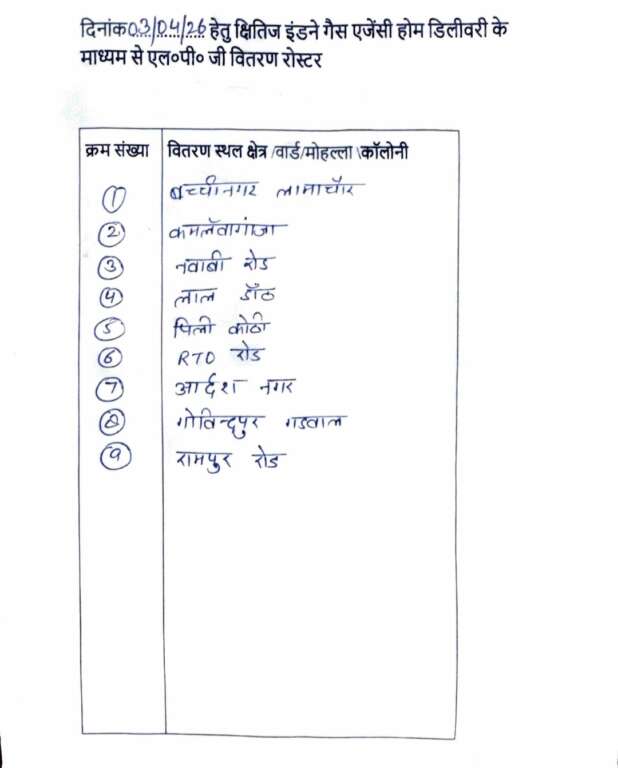 दिनांक 03/04/26 हेतु क्षितिज इंडने गैस एजेंसी होम डिलीवरी के
माध्यम से एल०पी० जी वितरण रोस्टर
क्रम संख्या वितरण स्थल क्षेत्र /वार्ड/मोहल्ला \कॉलोनी
1 बच्चीनगर लामाचौर
2 कमलॅवागांजा
3 नवाबी रोड
4 लाल डाँठ
5 पिली कोठी
6 RTO रोड
7 आर्दश नगर
8 गोविन्दपुर गडवाल
9 रामपुर रोड